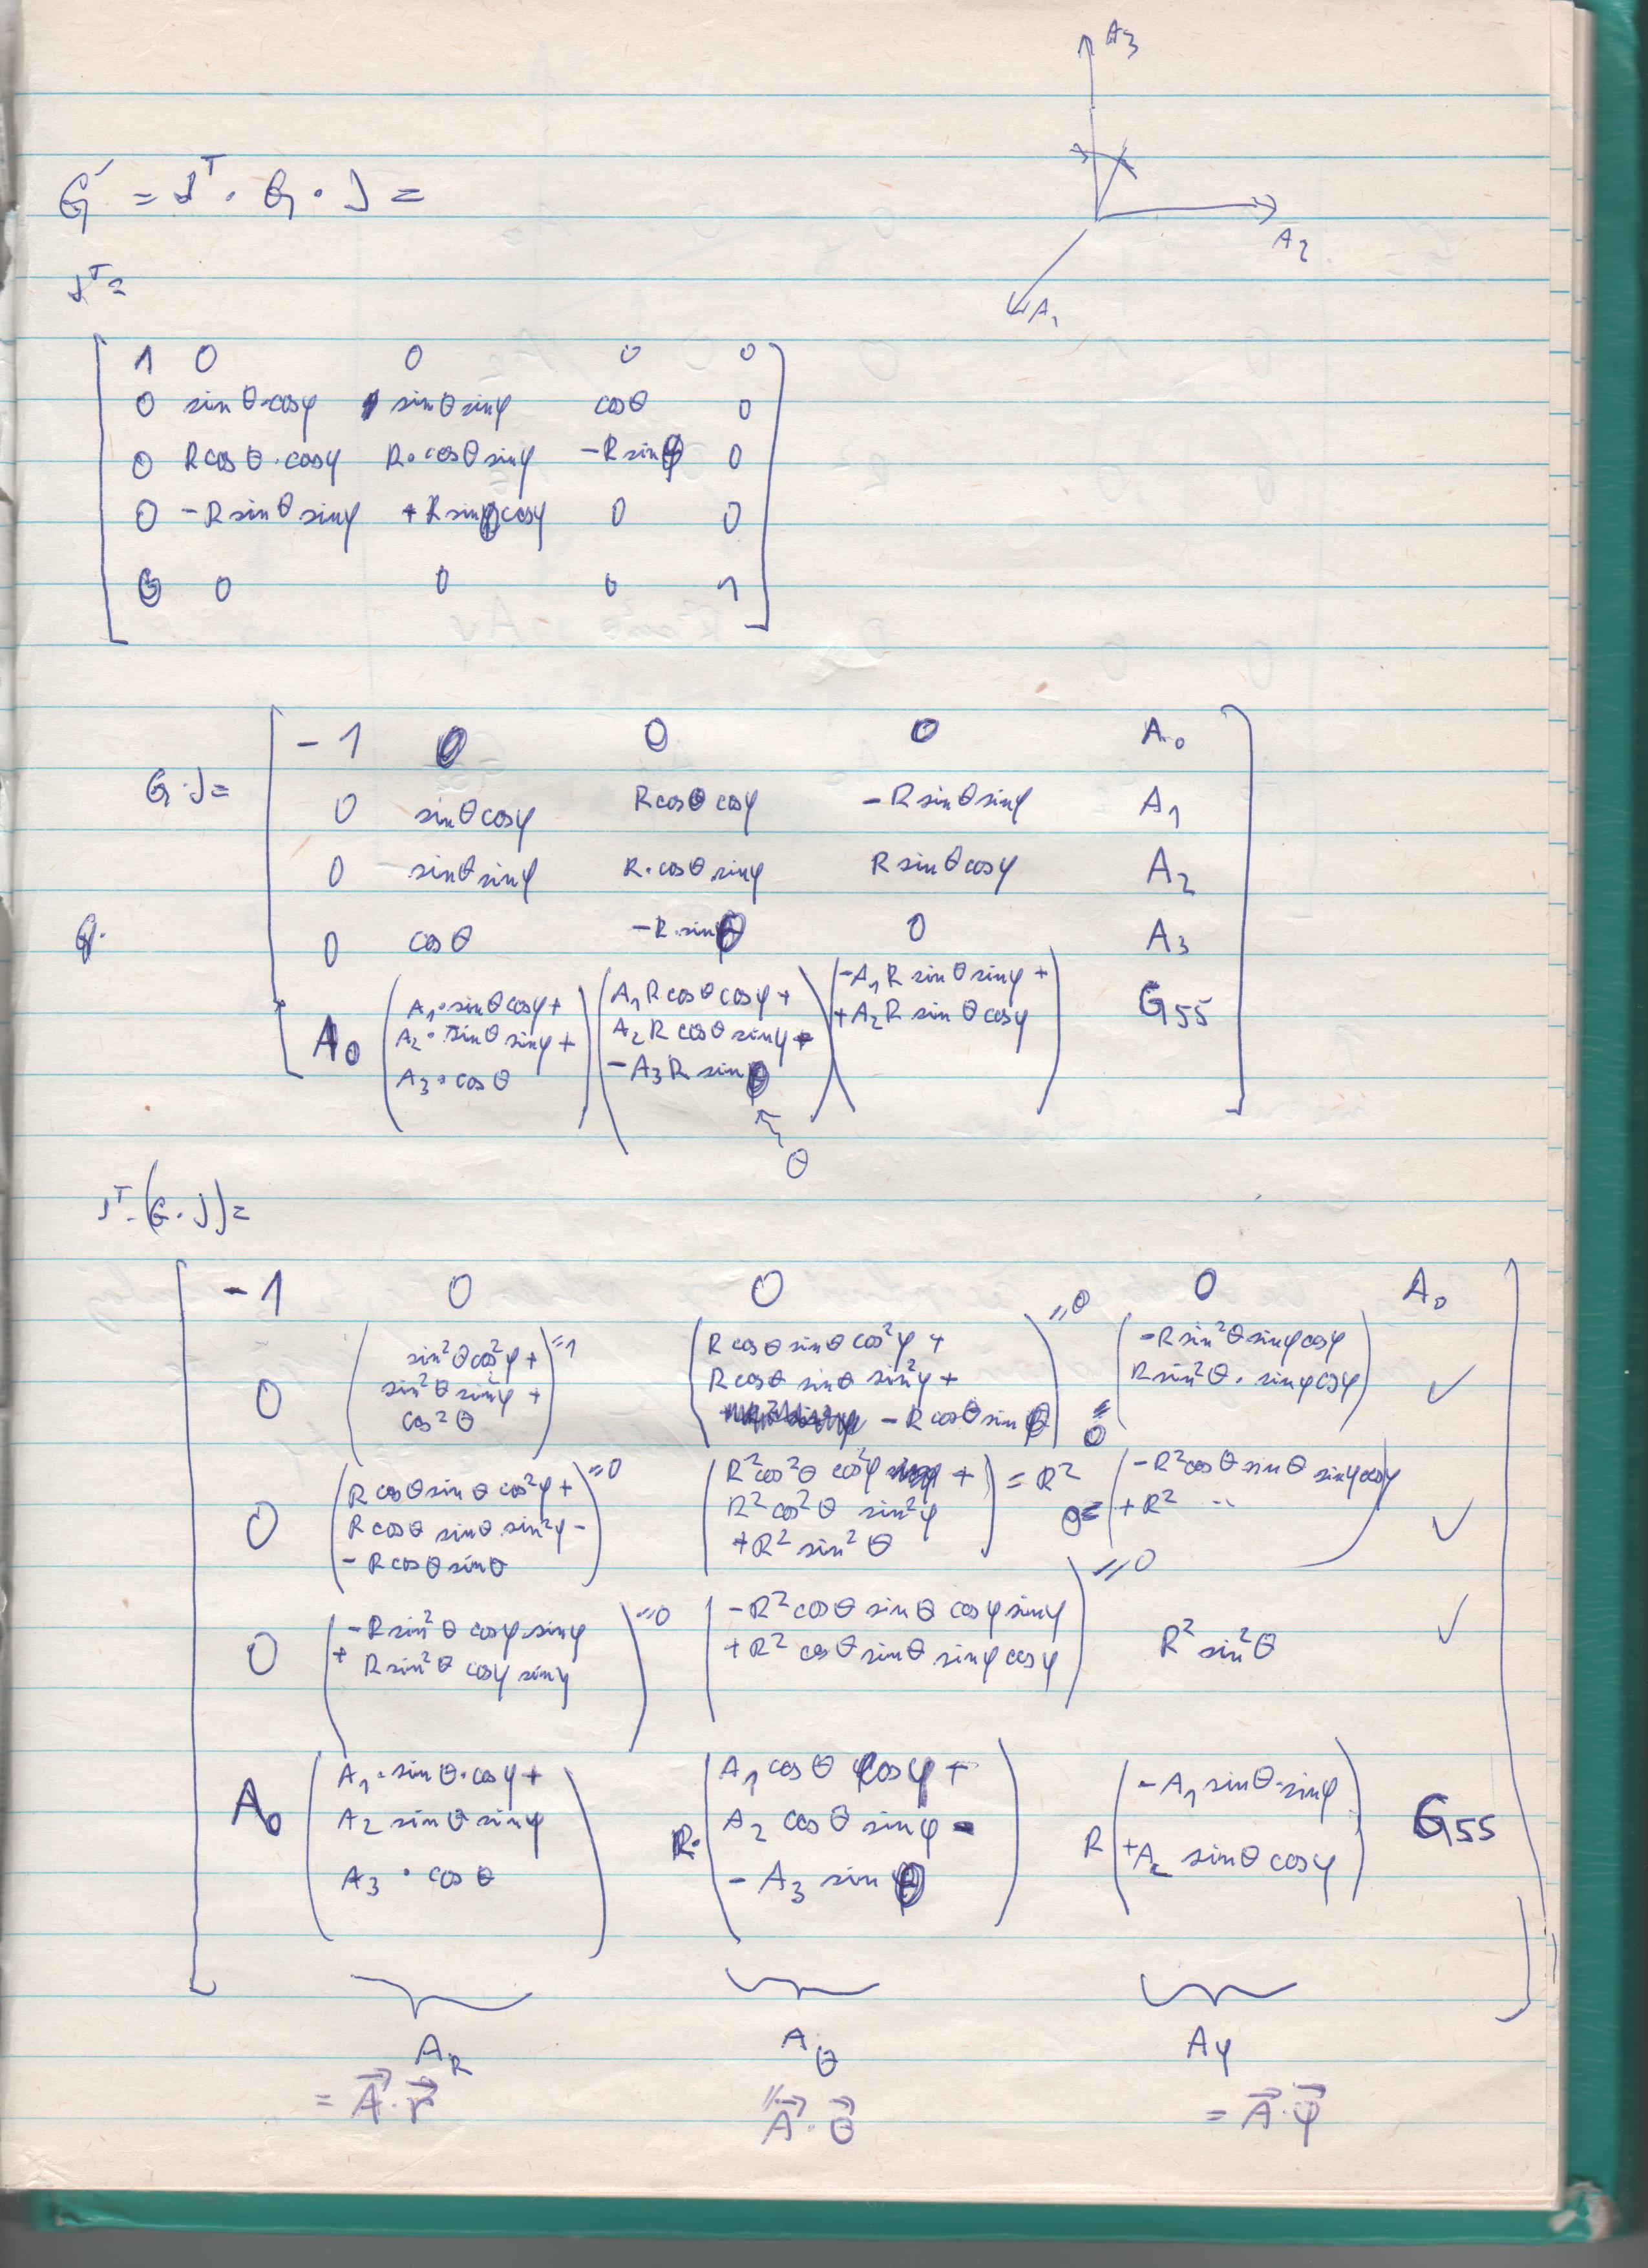 A3
A2
A1
G´ = J^T · G · J =
J^T =
1 0 0 0 0
0 sin θ·cosφ sin θ sinφ cosθ 0
0 R cos θ · cosφ R · cosθ sinφ -R sinθ 0
0 -R sinθ sinφ +R sinθ cosφ 0 0
0 0 0 0 1
G · J =
-1 0 0 0 A0
0 sinθ cosφ R cosθ cosφ -R sinθ sinφ A1
0 sinθ sinφ R·cosθ sinφ R sinθ cosφ A2
G·
0 cos θ -R·sinθ 0 A3
A0 (A1·sinθ cosφ + A2·sinθ sinφ + A3·cosθ) (A1 R cosθ cosφ + A2 R cosθ sinφ - A3 R sinθ) (-A1 R sinθ sinφ + +A2 R sinθ cosφ) G55
θ
J^T · (G · J) =
-1 0 0 0 A0
0 (sin²θ cos²φ + sin²θ sin²φ + cos²θ) =1 (R cosθ sinθ cos²φ + R cosθ sinθ sin²φ + - R cosθ sinθ) =0 (-R sin²θ sinφ cosφ R sin²θ · sinφ cosφ) = 0 ✓
0 (R cosθ sinθ cos²φ + R cosθ sinθ sin²φ - - R cosθ sinθ) =0 (R²cos²θ cos²φ + R²cos²θ sin²φ +R² sin²θ) = R² 0= (-R²cosθ sinθ sinφ cosφ +R² ··) ✓
0 (-R sin²θ cosφ·sinφ + R sin²θ cosφ sinφ) =0 (-R²cosθ sinθ cosφ sinφ +R² cosθ sinθ sinφ cosφ) =0 R² sin²θ ✓
A0 (A1·sinθ·cosφ + A2 sinθ sinφ A3 · cosθ) R·(A1 cosθ cosφ + A2 cosθ sinφ - - A3 sinθ) R (-A1 sinθ·sinφ +A2 sinθ cosφ) G55
A_R A_θ A_φ
= A⃗·r⃗ = A⃗·θ⃗ = A⃗·φ⃗